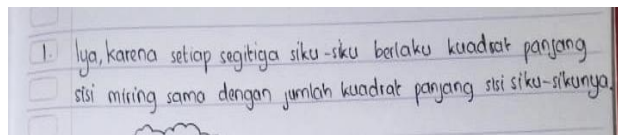 1. Iya, karena setiap segitiga siku-siku berlaku kuadrat panjang
sisi miring sama dengan jumlah kuadrat panjang sisi siku-sikunya.